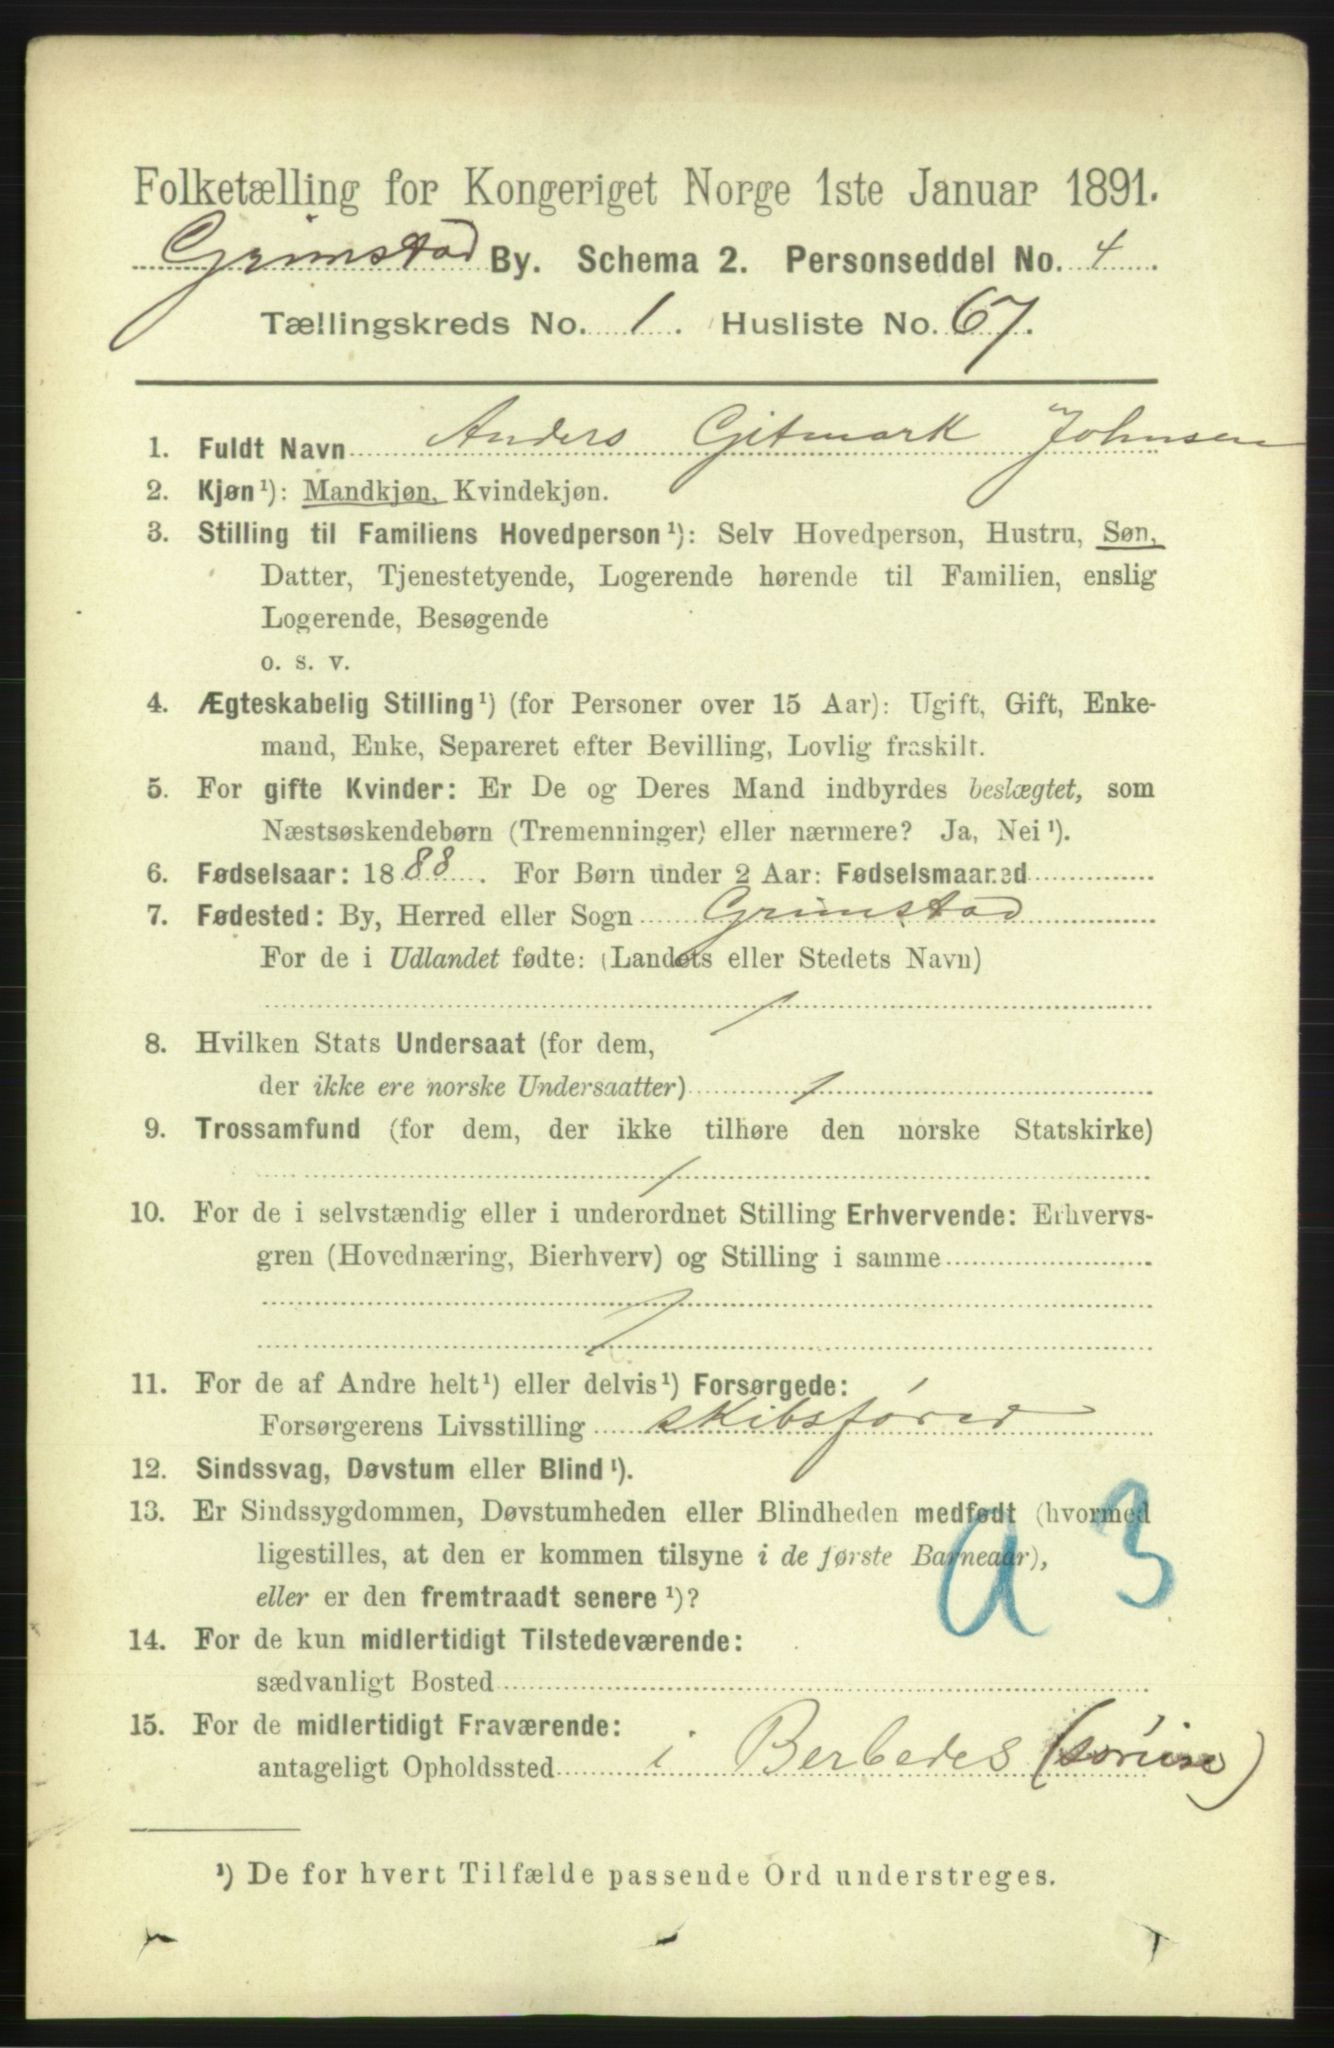 Folketælling for Kongeriget Norge 1ste Januar 1891.
Grimstad By. Schema 2. Personseddel No. 4.
Tællingskreds No. 1. Husliste No. 67.
1. Fuldt Navn Anders Gitmark Johnsen
2. Kjøn¹): Mandkjøn, Kvindekjøn.
3. Stilling til Familiens Hovedperson¹): Selv Hovedperson, Hustru, Søn,
Datter, Tjenestetyende, Logerende hørende til Familien, enslig
Logerende, Besøgende
o. s. v.
4. Ægteskabelig Stilling¹) (for Personer over 15 Aar): Ugift, Gift, Enke-
mand, Enke, Separeret efter Bevilling, Lovlig fraskilt.
5. For gifte Kvinder: Er De og Deres Mand indbyrdes beslægtet, som
Næstsøskendebørn (Tremenninger) eller nærmere? Ja, Nei¹).
6. Fødselsaar: 1888. For Børn under 2 Aar: Fødselsmaaned
7. Fødested: By, Herred eller Sogn Grimstad
For de i Udlandet fødte: (Landets eller Stedets Navn)
/
8. Hvilken Stats Undersaat (for dem,
der ikke ere norske Undersaatter) /
9. Trossamfund (for dem, der ikke tilhøre den norske Statskirke)
/
10. For de i selvstændig eller i underordnet Stilling Erhvervende: Erhvervs-
gren (Hovednæring, Bierhverv) og Stilling i samme
/
11. For de af Andre helt¹) eller delvis¹) Forsørgede:
Forsørgerens Livsstilling skibsfører
12. Sindssvag, Døvstum eller Blind¹).
13. Er Sindssygdommen, Døvstumheden eller Blindheden medfødt (hvormed
ligestilles, at den er kommen tilsyne i de første Barneaar),
eller er den fremtraadt senere¹)?
a 3
14. For de kun midlertidigt Tilstedeværende:
sædvanligt Bosted
15. For de midlertidigt Fraværende:
antageligt Opholdssted i Berbedes
¹) De for hvert Tilfælde passende Ord understreges.